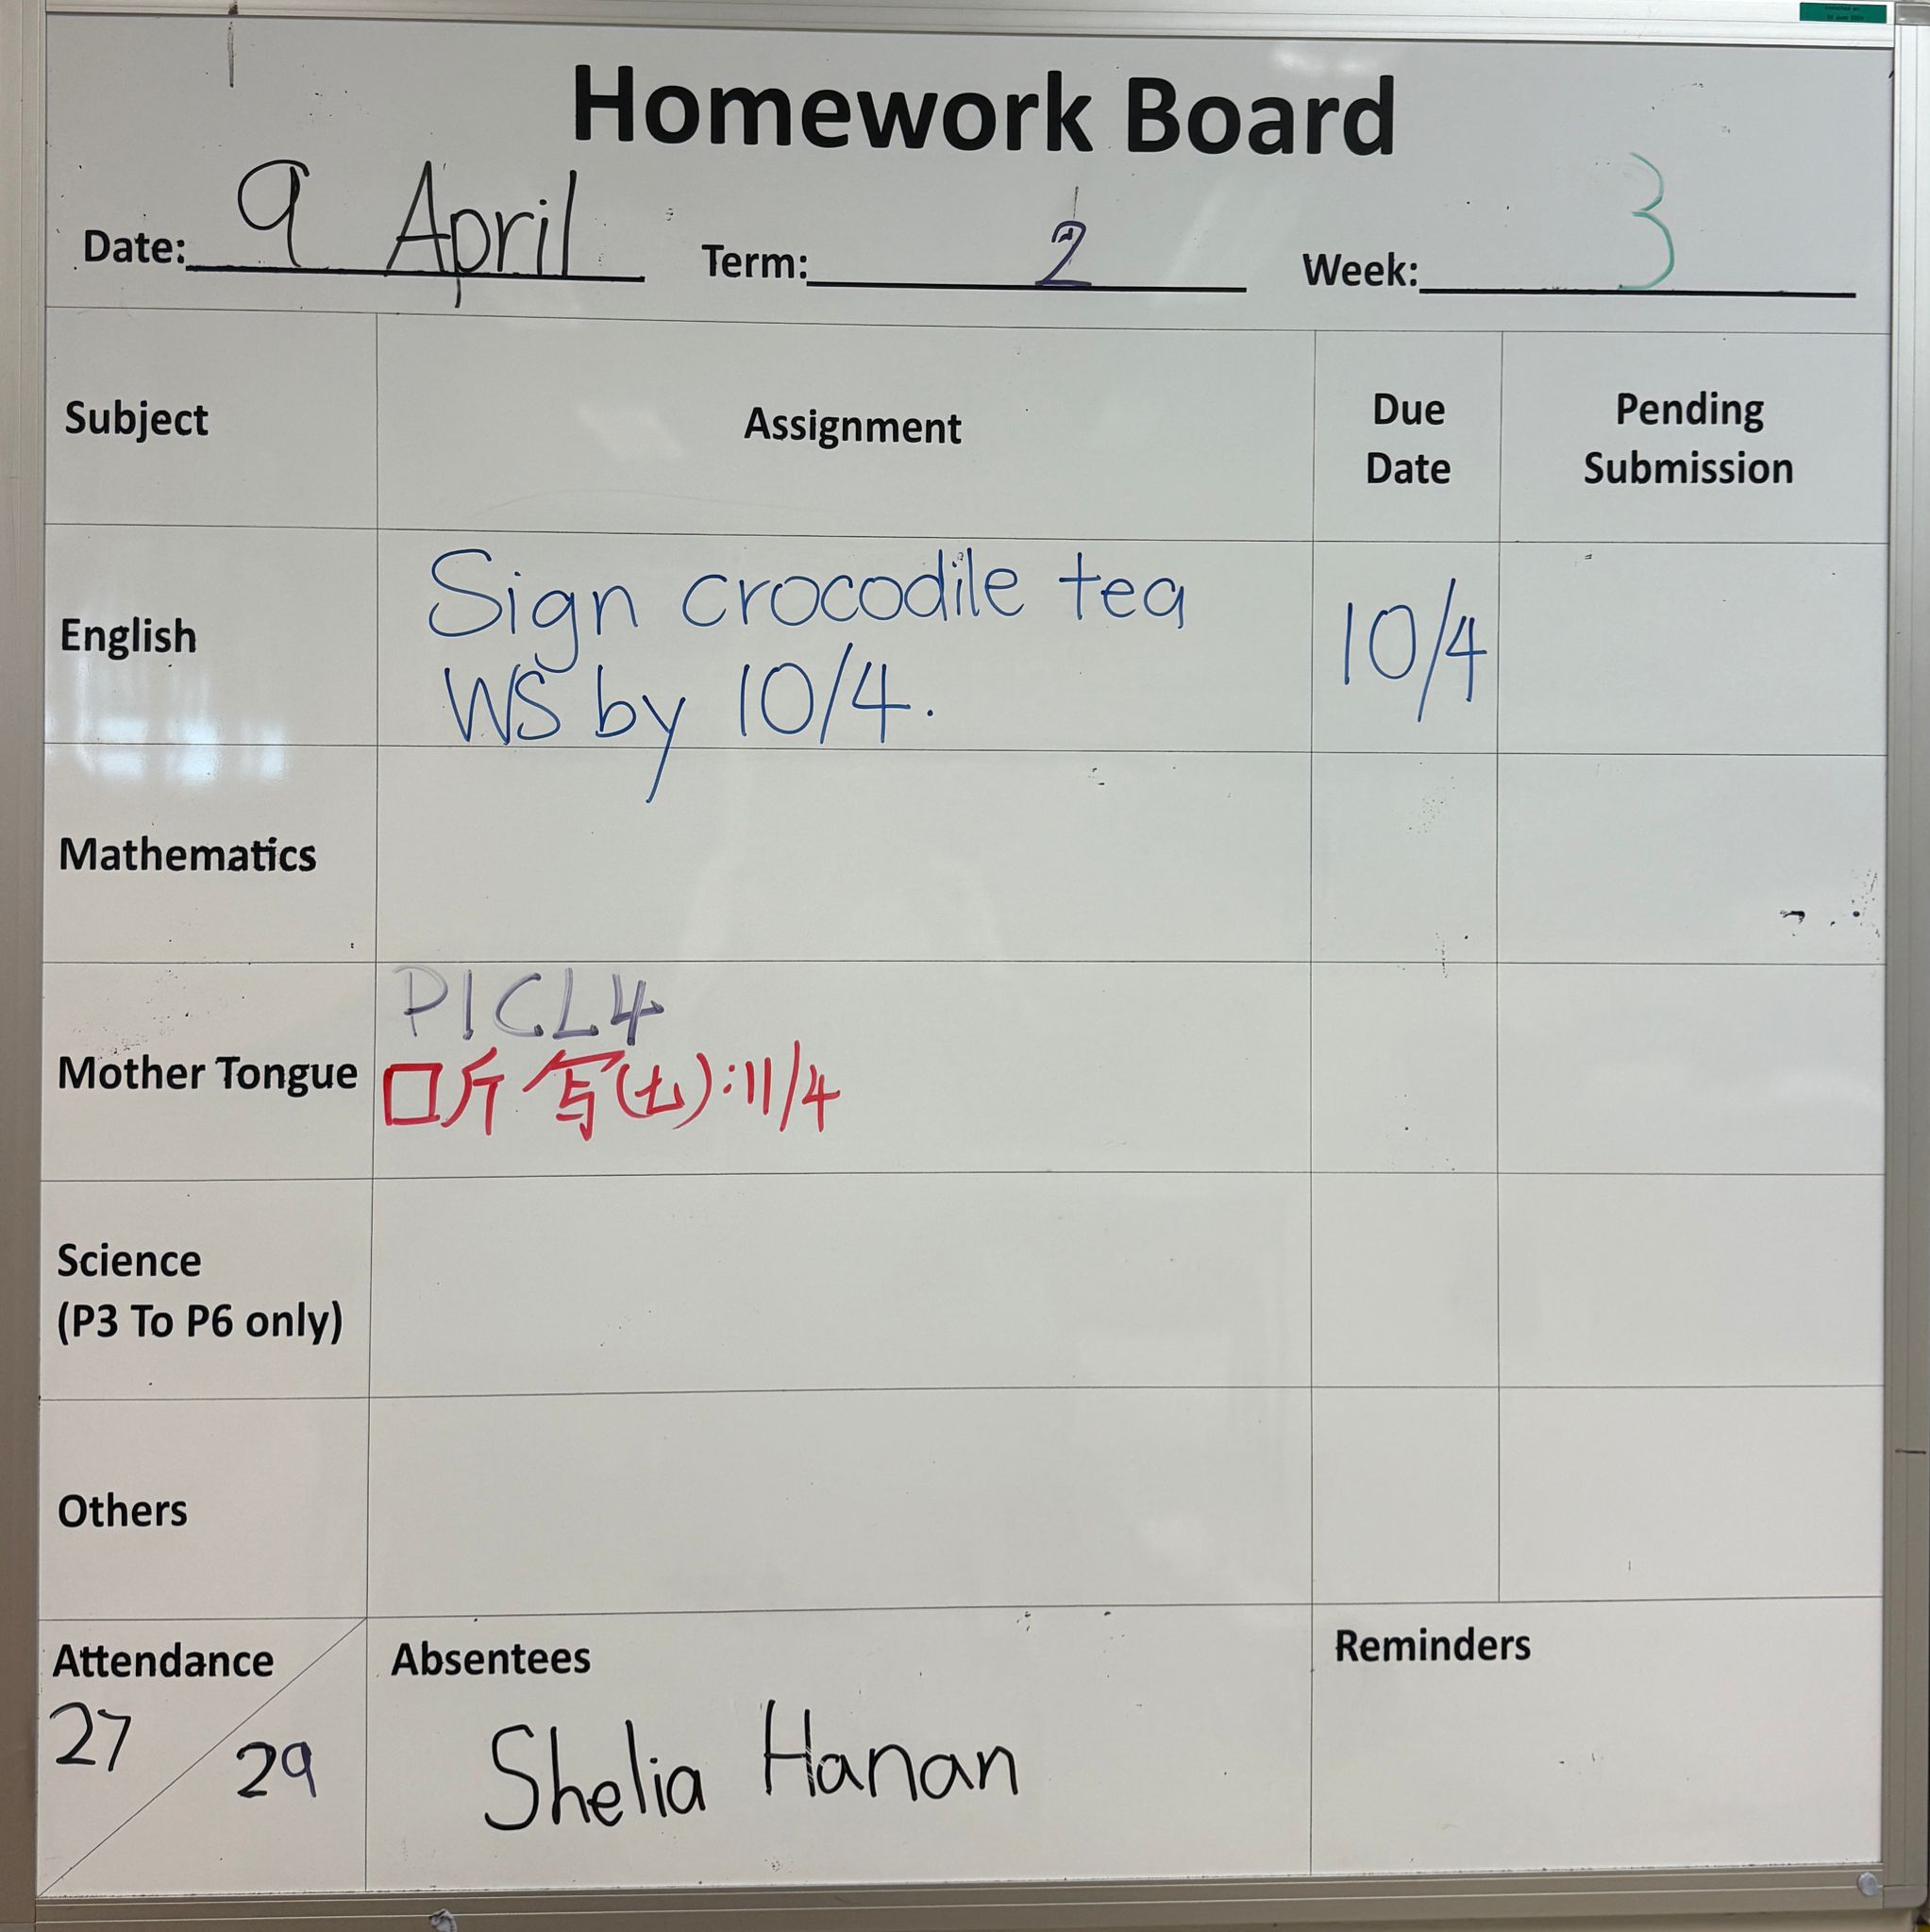 Homework Board
Date: 9 April Term: 2 Week: 3
Subject Assignment Due Date Pending Submission
English Sign crocodile tea WS by 10/4. 10/4
Mathematics
Mother Tongue P1CL4
听写(七):11/4
Science
(P3 To P6 only)
Others
Attendance Absentees Reminders
27 29 Shelia Hanan